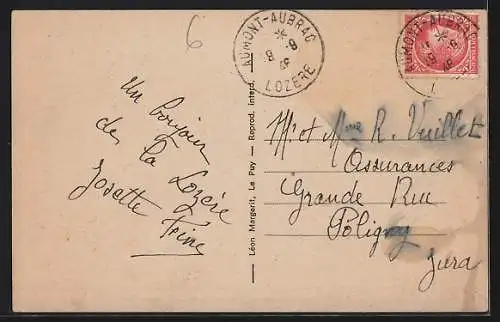 6
AUMONT-AUBRAC
LOZERE
AUMONT-AUBRAC
Un bonjour
de la Lozère
Josette
Léon Margerit, Le Puy — Reprod. interd.
Mr et Mme R. Vuillet
Assurances
Grande Rue
Poligny
Jura